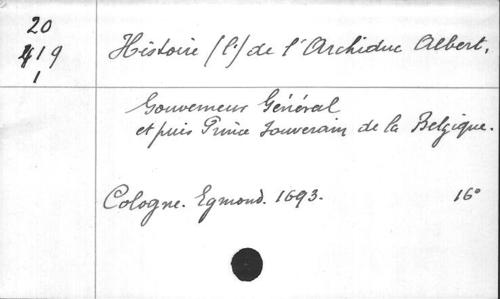 20
419
1
Histoire (l') de l'Archiduc Albert,
Gouverneur Général
et puis Prince Souverain de la Belgique.
Cologne. Egmond. 1693. 16°